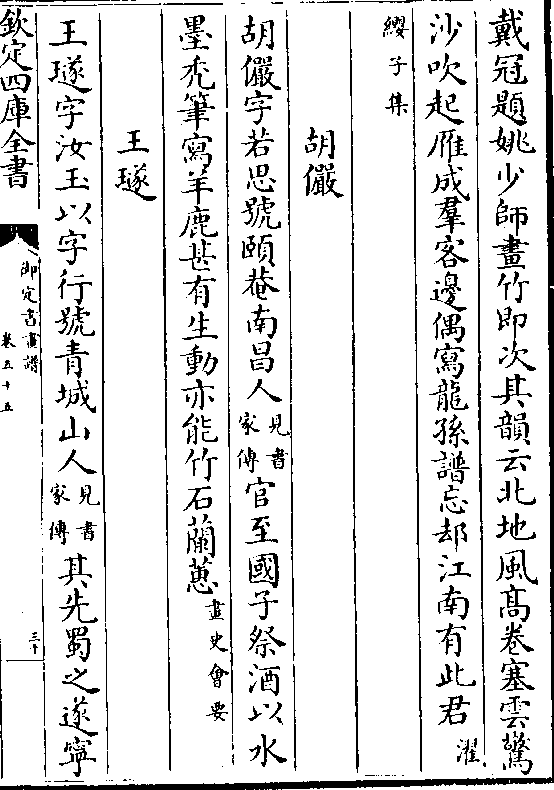 戴冠題姚少師畫竹即次其韻云北地風髙卷塞雲驚
沙吹起雁成羣客邊偶寫龍孫譜忘却江南有此君 濯
纓子集
胡儼
胡儼字若思號頥菴南昌人 見書家傳 官至國子祭酒以水
墨秃筆寫羊鹿甚有生動亦能竹石蘭蕙 畫史會要
王璲
王璲字汝玉以字行號青城山人 見書家傳 其先蜀之遂寧
欽定四庫全書
御定書畫譜
卷五十五
三十